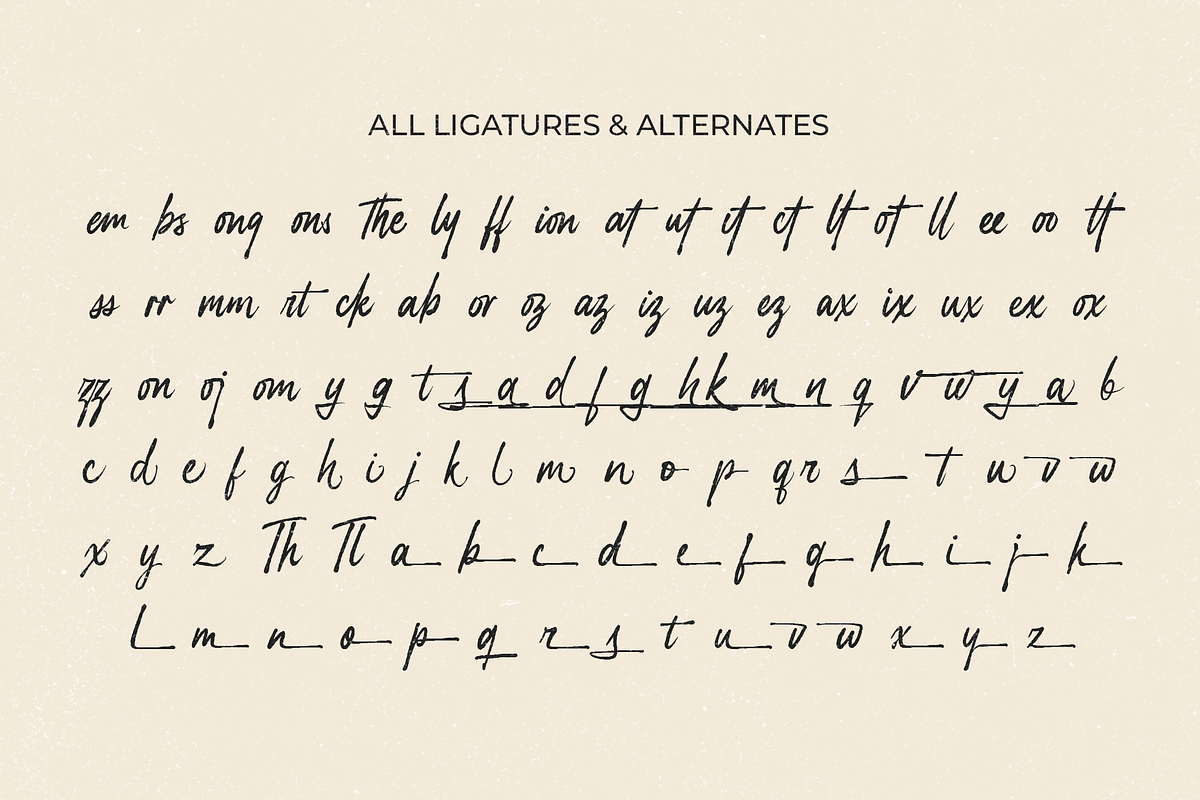 ALL LIGATURES & ALTERNATES
em bs ong ons The ly ff ion at ut it et lt ot ll ee oo tt
ss rr mm rt ck ab or oz az iz uz ez ax ix ux ex ox
zz on oj om y g t s a d f g h k m n q v w y a b
c d e f g h i j k l m n o p q r s t u v w
x y z Th Tl a b c d e f g h i j k
l m n o p q r s t u v w x y z